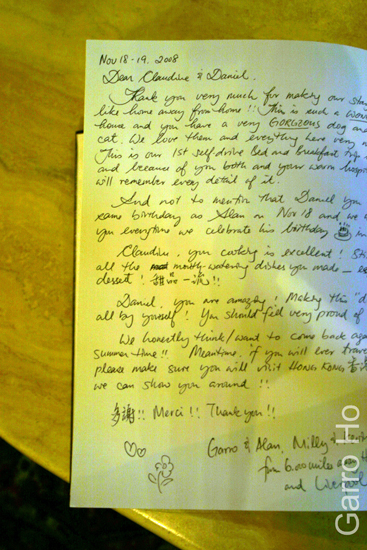 Nov 18-19. 2008
Dear Claudine & Daniel.
Thank you very much for making our stay
like home away from home!! This is such a
house and you have a very GORGEOUS dog and
cat. We love them and everything here very
This is our 1st self drive bed and breakfast trip
and because of you both and your warm
will remember every detail of it.
And not to mention that Daniel you
same birthday as Alan on Nov 18 and we
you everytime we celebrate his birthday
Claudine, your cooking is excellent!
all the mouth-watering dishes you made —
dessert! 甜品一流!!
Daniel, you are amazing! Making this
all by yourself! You should feel very proud of
We honestly think/want to come back
summer time!! Meantime, if you will ever
please make sure you will visit HONG KONG
we can show you around!!
多謝!! Merci!! Thank you!!
Garro & Alan, Milly
and
Garro Ho